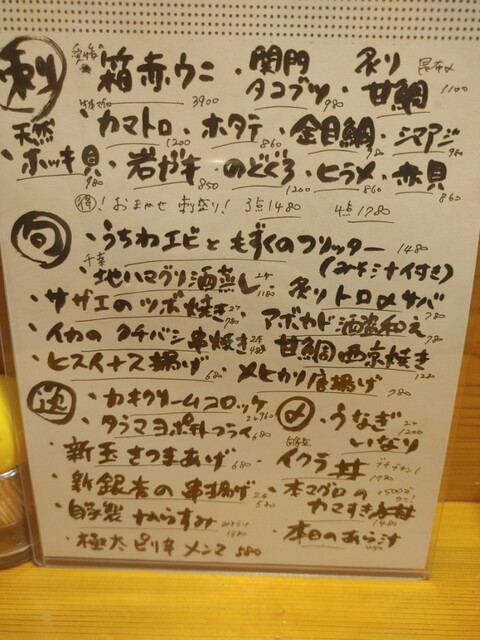 刺
箱赤ウニ 3900
関門タコブツ 980
炙り甘鯛 1100
天然
カマトロ 1200
ホタテ 860
金目鯛 980
シマアジ 980
ホッキ貝 980
岩ガキ 850
のどぐろ 1200
ヒラメ 860
赤貝 860
得！おまかせ刺盛り！ 3点1480 4点1780
旬
うちわエビともずくのフリッター 1480
千葉
地ハマグリ酒蒸し 1180
(みそミナイ付き)
炙りトロ〆サバ 780
サザエのツボ焼き 780
アボカド酒盗和え 780
イカのクチバシ串焼き 2本480
甘鯛西京焼き
ヒスイナス揚げ 680
メヒカリ唐揚げ 780
カキクリームコロッケ 2ケ960
タラマヨポテトフライ 680
新玉さつまあげ 680
新銀杏の串揚げ
自家製 からすみ
極太ピリ辛メンマ 580
〆
うなぎいなり 2ケ1200
イクラ丼
本マグロのカマすき身丼 1480
本日のあら汁